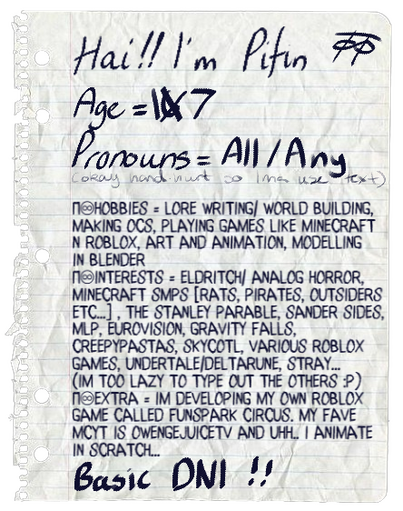 Hai!! I'm Pifin
Age = 7
Pronouns = All/Any
(okay hand hurt so ima use text)
HOBBIES = LORE WRITING/ WORLD BUILDING,
MAKING OCS, PLAYING GAMES LIKE MINECRAFT
N ROBLOX, ART AND ANIMATION, MODELLING
IN BLENDER
INTERESTS = ELDRITCH/ ANALOG HORROR,
MINECRAFT SMPS [RATS, PIRATES, OUTSIDERS
ETC...] , THE STANLEY PARABLE, SANDER SIDES,
MLP, EUROVISION, GRAVITY FALLS,
CREEPYPASTAS, SKYCOTL, VARIOUS ROBLOX
GAMES, UNDERTALE/DELTARUNE, STRAY...
(IM TOO LAZY TO TYPE OUT THE OTHERS :P)
EXTRA = IM DEVELOPING MY OWN ROBLOX
GAME CALLED FUNSPARK CIRCUS. MY FAVE
MCYT IS OWENGEJUICETV AND UHH.. I ANIMATE
IN SCRATCH...
Basic DNI !!